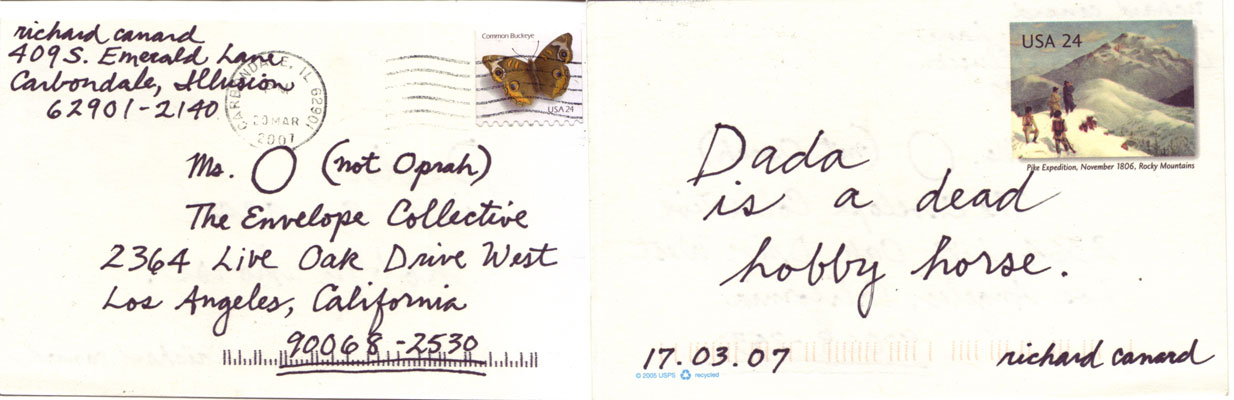 richard canard
409 S. Emerald Lane
Carbondale, Illusion
62901-2140
CARBONDALE, IL 62901
20 MAR
2007
Common Buckeye
USA 24
Ms. O (not Oprah)
The Envelope Collective
2364 Live Oak Drive West
Los Angeles, California
90068-2530
USA 24
Pike Expedition, November 1806, Rocky Mountains
Dada
is a dead
hobby horse.
17.03.07
richard canard
© 2005 USPS recycled